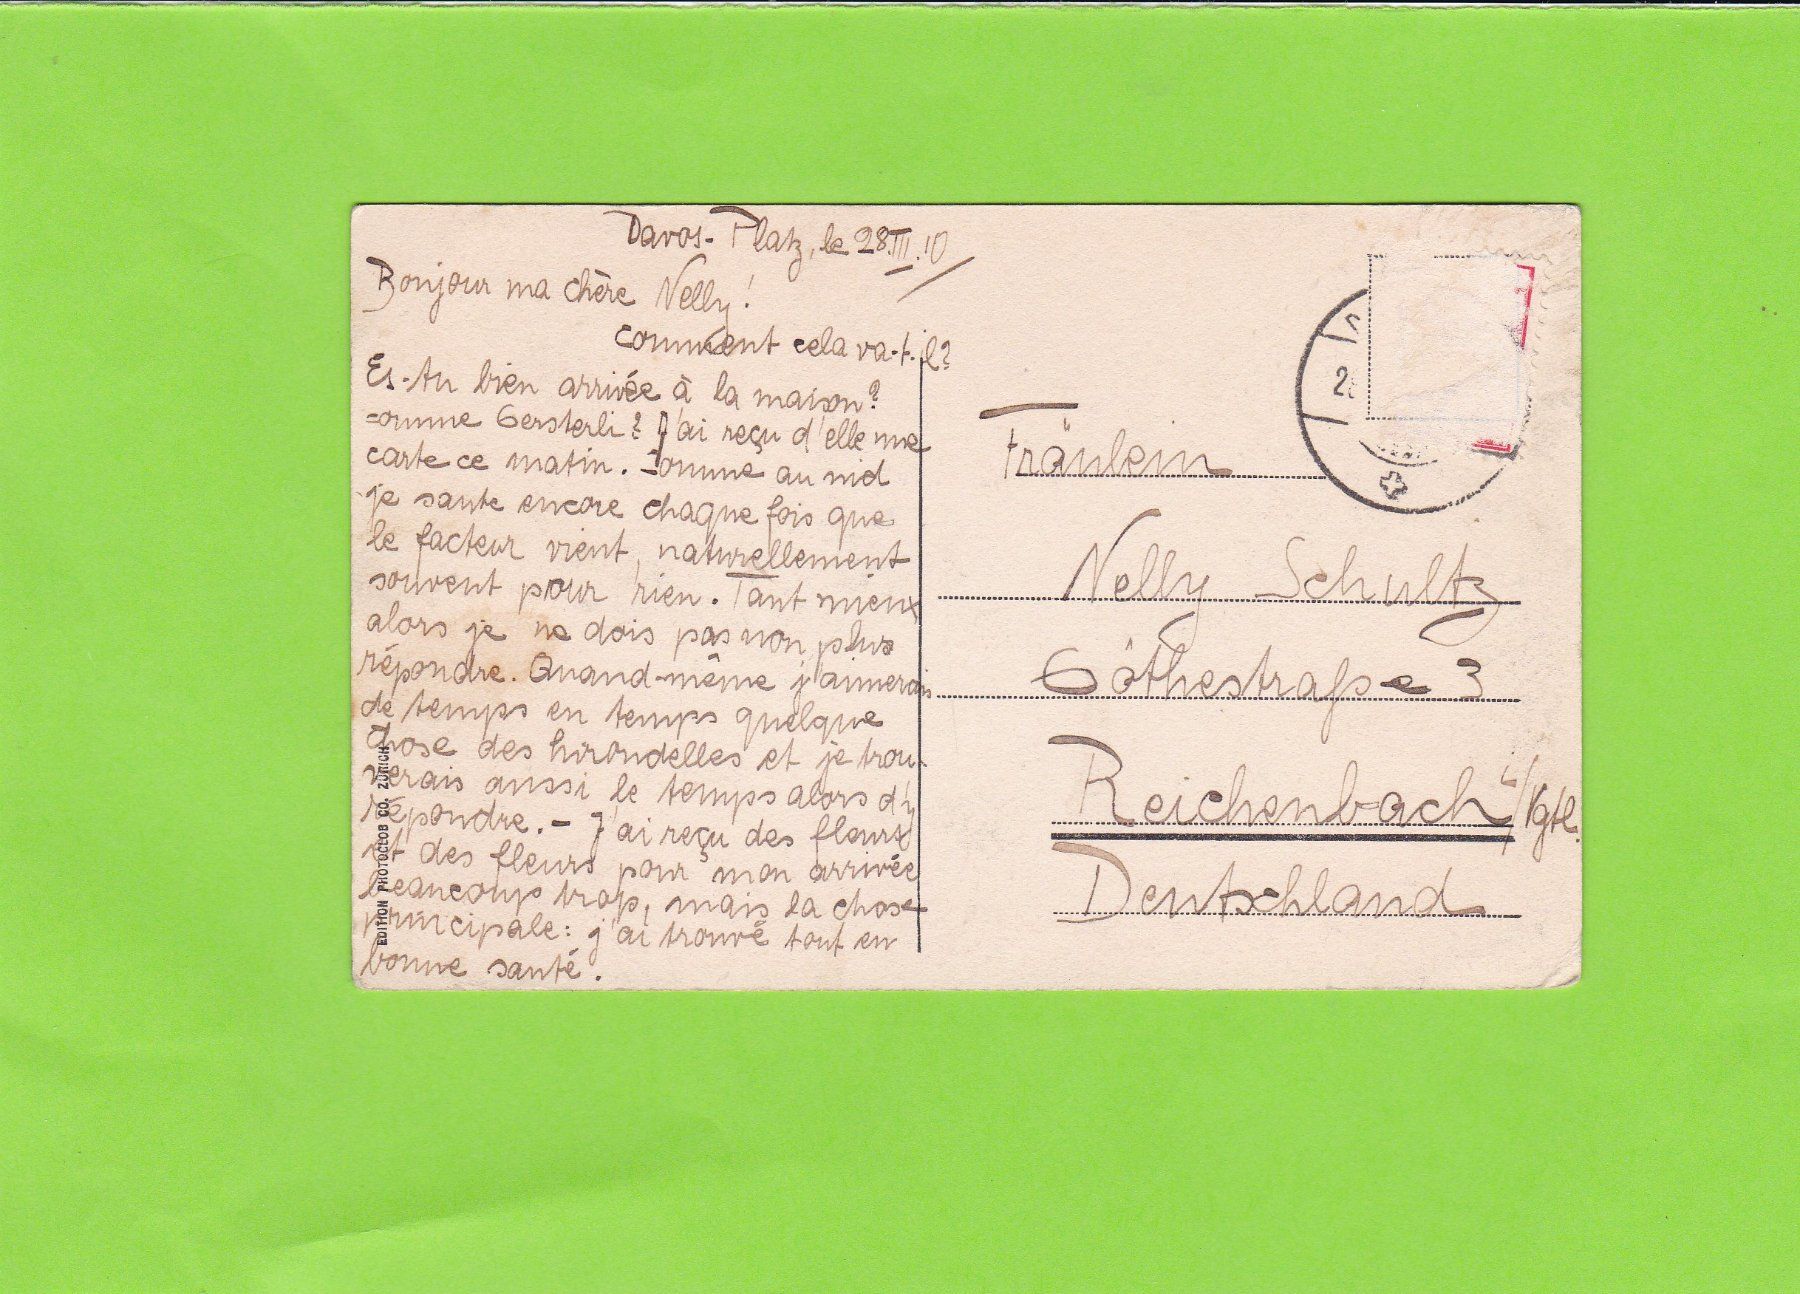 Davos-Platz, le 28.III.10
Bonjour ma chère Nelly!
comment cela va-t-il?
Es-tu bien arrivée à la maison?
comme Gersterli? J'ai reçu d'elle une
carte ce matin. Comme au nid
je saute encore chaque fois que
le facteur vient, naturellement
souvent pour rien. Tant mieux
alors je ne dois pas non plus
répondre. Quand-même j'aimerais
de temps en temps quelque
chose des hirondelles et je trou-
verais aussi le temps alors d'y
répondre. - J'ai reçu des fleurs
et des fleurs pour mon arrivée
beaucoup trop, mais la chose
principale: j'ai trouvé tout en
bonne santé.
EDITION PHOTOGLOB CO. ZÜRICH
Fräulein
Nelly Schultz
Göthestraße 3
Reichenbach i/Vgtl.
Deutschland